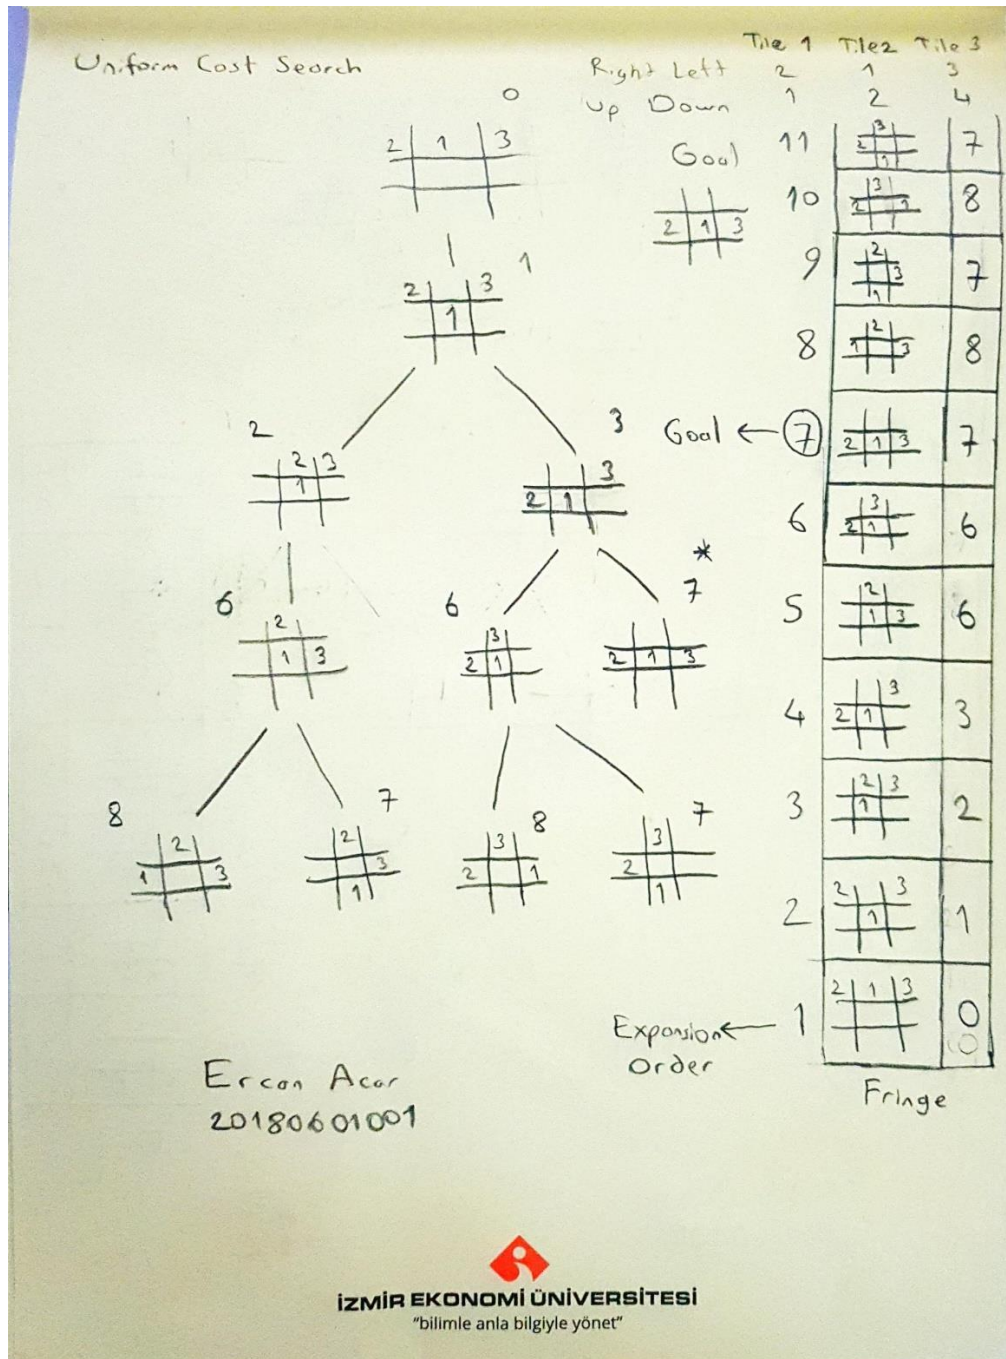 Uniform Cost Search
Tile 1 Tile2 Tile 3
Right Left 2 1 3
Up Down 1 2 4
0
2 1 3
1
2 3
1
2
2 3
1
3
3
2 1
6
2
1 3
6
3
2 1
*
7
2 1 3
8
2
1 3
7
2
3
1
8
3
2 1
7
3
2
1
Goal
2 1 3
11
3
2
1
7
10
3
2 1
8
9
2
3
1
7
8
2
1 3
8
Goal ← 7
2 1 3
7
6
3
2 1
6
5
2
1 3
6
4
3
2 1
3
3
2 3
1
2
2
2 3
1
1
Expansion ← 1
Order
2 1 3
0
Fringe
Ercan Acar
20180601001
İZMİR EKONOMİ ÜNİVERSİTESİ
“bilimle anla bilgiyle yönet”